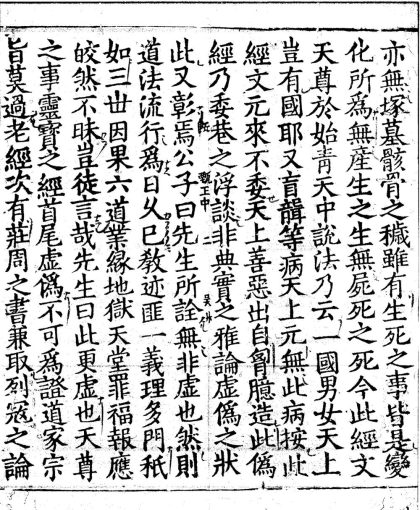 亦無塚墓骸骨之穢雖有生死之事皆是變
化所為無產生之生無屍死之死今此經文
天尊於始青天中說法乃云一國男女天上
豈有國耶又盲聾等病天上元無此病按此
經文元來不委天上善惡出自胷臆造此偽
經乃委巷之浮談非典實之雅論虛偽之狀
此又彰焉公子曰先生所詮無非虛也然則
道法流行為日乆巳敎迹匪一義理多門秖
如三世因果六道業緣地獄天堂罪福報應
皎然不昧豈徒言哉先生曰此更虛也天尊
之事靈寶之經首尾虛偽不可為證道家宗
旨莫過老經次有莊周之書兼取列寇之論